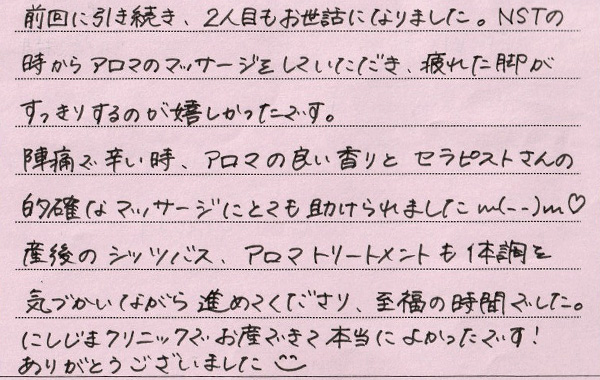 前回に引き続き、2人目もお世話になりました。NSTの
時からアロマのマッサージをしていただき、疲れた脚が
すっきりするのが嬉しかったです。
陣痛で辛い時、アロマの良い香りと セラピストさんの
的確なマッサージにとても助けられましたm(--)m♡
産後の シッツバス、アロマトリートメントも 体調を
気づかいながら 進めてくださり、至福の時間でした。
にしじまクリニックでお産できて本当によかったです!
ありがとうございました